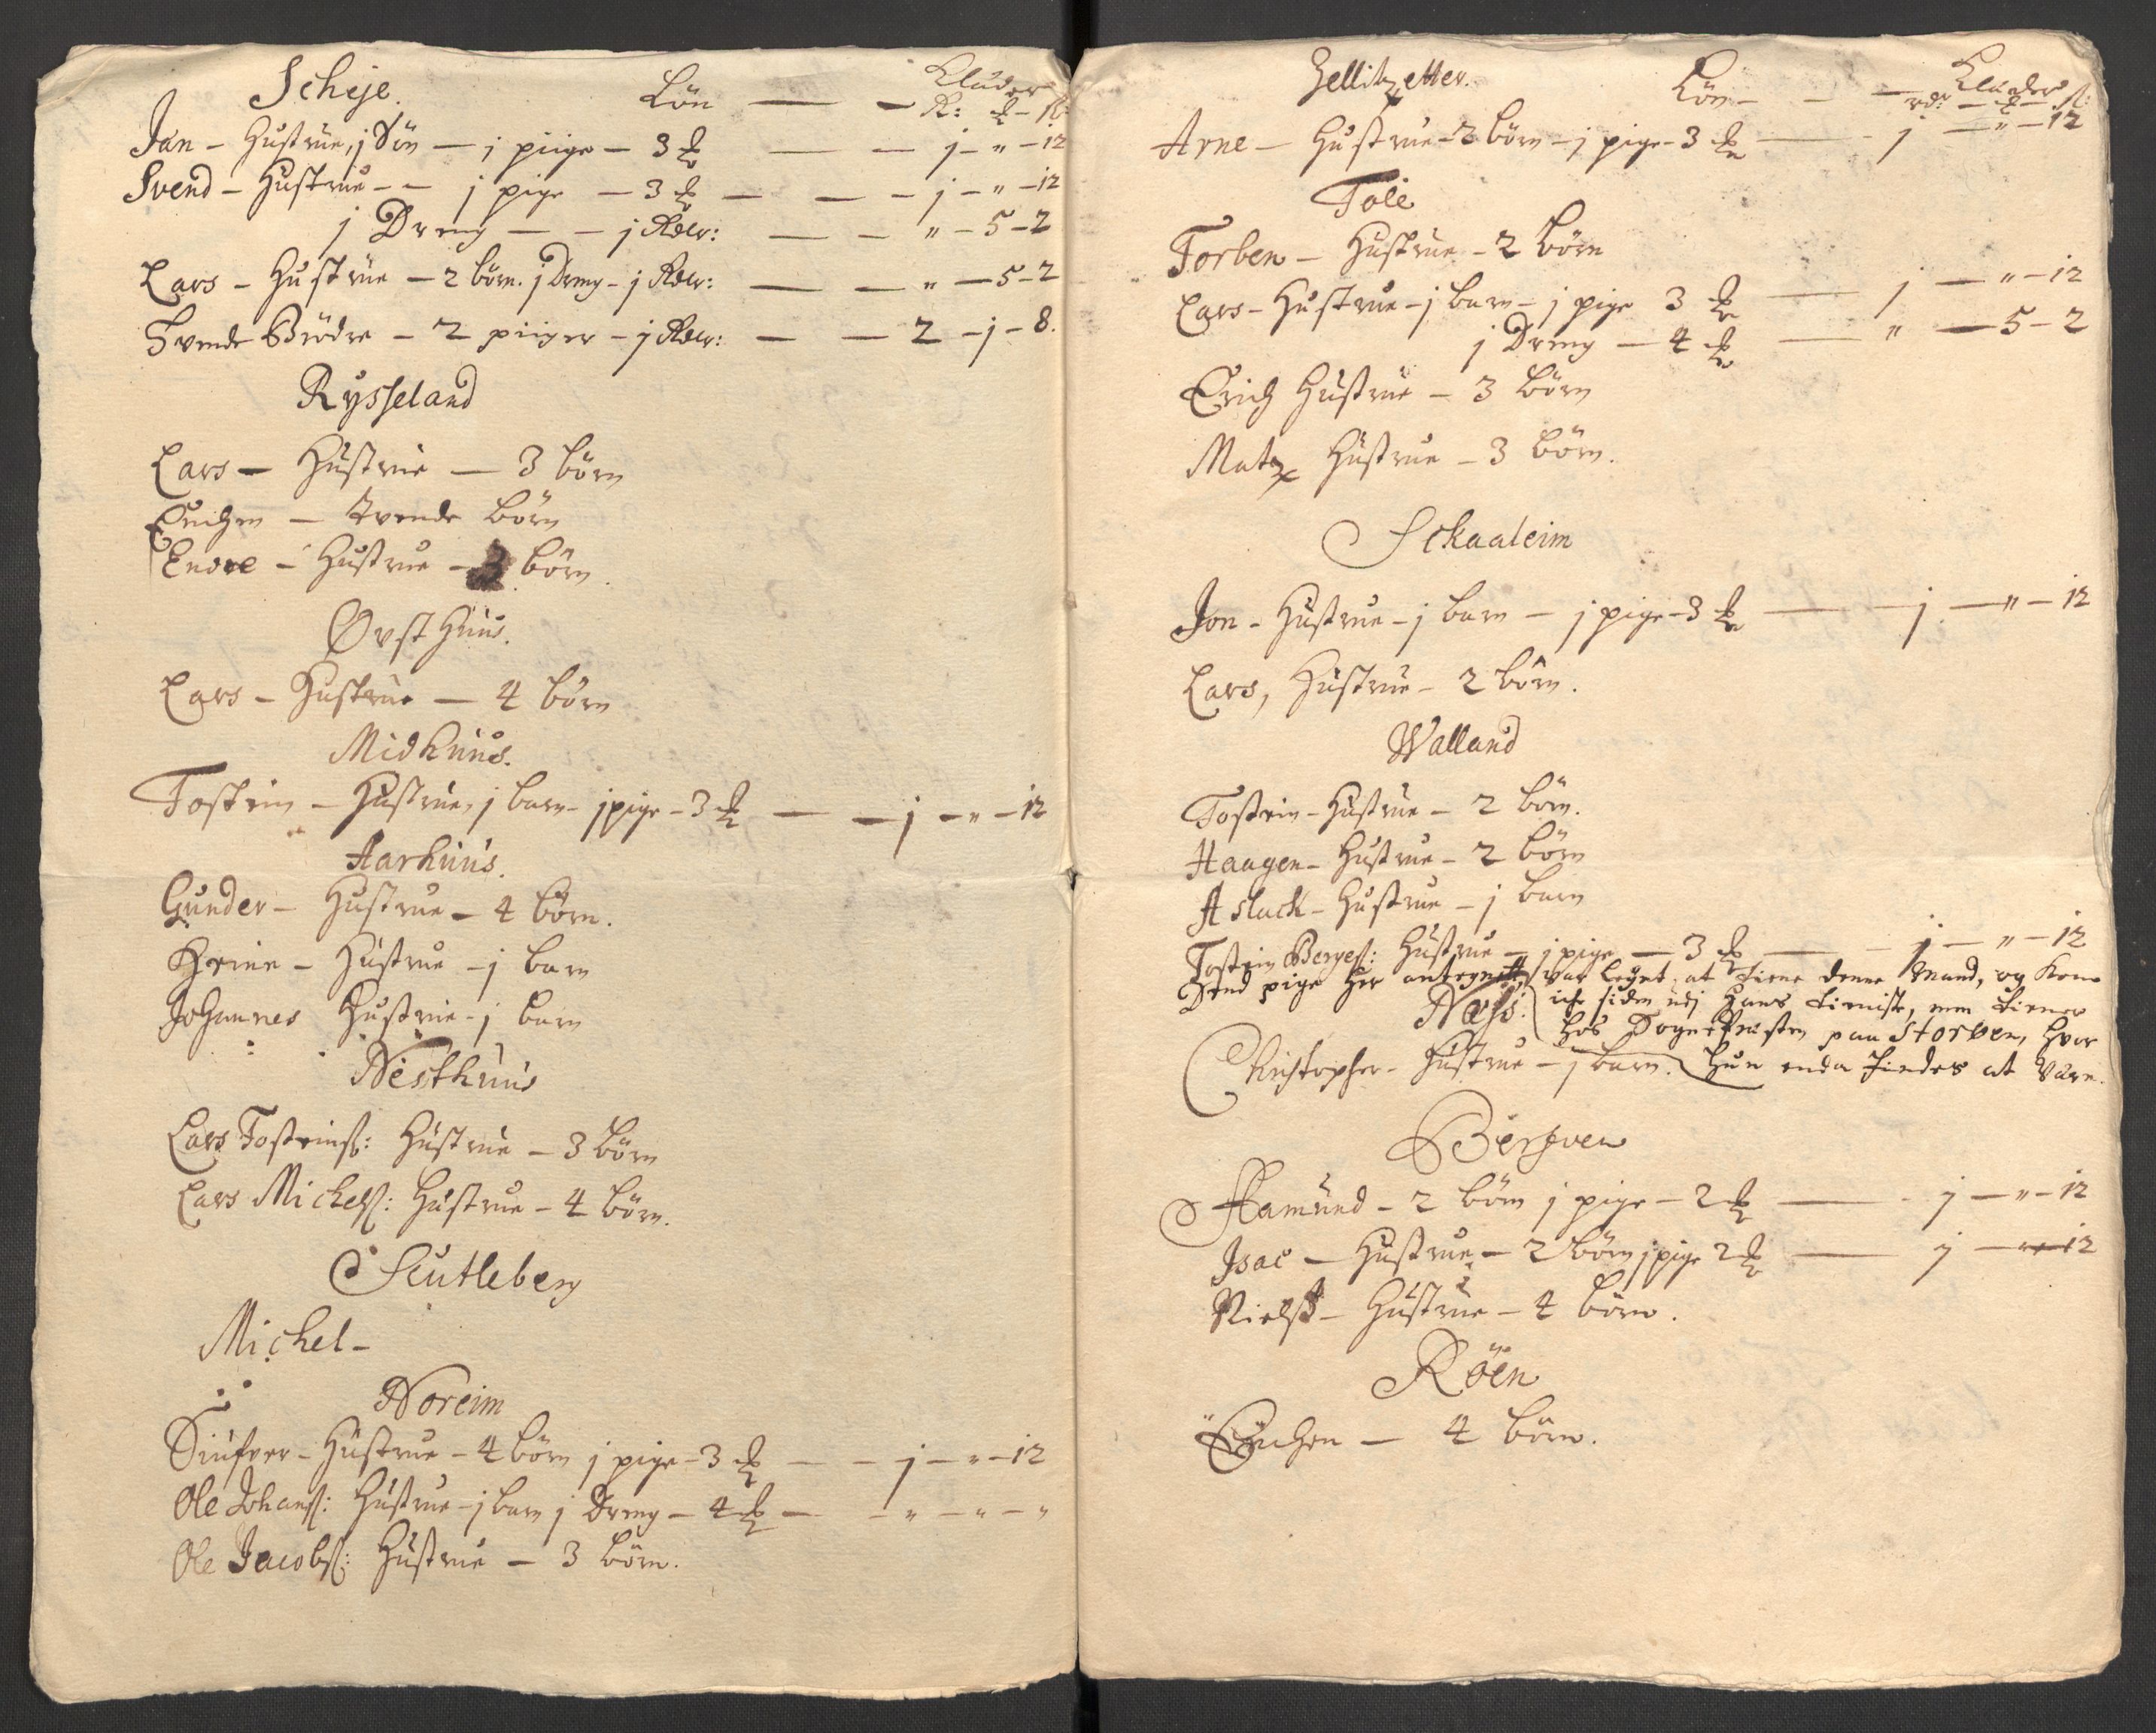 Scheje. Lön — — Klæder
R: ꝑ - ß:
Jan - Hustrue, j Sön — j piige — 3 ꝑ — — j - " - 12
Svend - Hustrue - - j pige — 3 ꝑ — — - j - " - 12
j Dreng — - j Rdlr: — — " - 5 - 2
Lars - Hustrue — 2 börn. j Dreng - j Rdlr: — — " — 5 - 2
Tvende Brödre - 2 piiger - j Rdlr: — — 2 - j - 8.
Rysseland
Lars — Hustrue — 3 börn
Enchen — tvende börn
Endre - Hustrue - 3 börn.
Øvst Huus.
Lars - Hustrue — 4 börn
Midhuus.
Tostein - Hustrue, j barn - j pige - 3 ꝑ — — j - " - 12
Aarhuus.
Gunder - Hustrue - 4 börn.
Heine - Hustrue - j barn
Johannes Hustrue - j barn
Nesthuus
Lars Tosteinß: Hustrue - 3 börn
Lars Michelß: Hustrue - 4 börn.
Scutleberg
Michel -
Noreim
Siufver - Hustrue - 4 börn j pige - 3 ꝑ — - j - " - 12
Ole Johanß: Hustrue - j barn j Dreng - 4 ꝑ — - " - " - "
Ole Jacobß: Hustrue — 3 börn.
Zellitzetter. Lön - - — Klæder
rdr - ꝑ - ß:
Arne — Hustrue - 2 börn - j pige - 3 ꝑ — - j — " - 12
Tole
Torben - Hustrue - 2 börn
Lars - Hustrue - j barn - j pige 3 ꝑ — j — " - 12
j Dreng — 4 ꝑ — " — 5 - 2
Erich Hustrue - 3 börn
Matz Hustrue - 3 börn.
Skaaleim
Jon - Hustrue - j barn - j pige - 3 ꝑ — - j — " - 12
Lars, Hustrue - 2 börn.
Walland
Tostein - Hustrue - 2 börn.
Haagen - Hustrue - 2 börn
Aslach - Hustrue - j barn
Tostein Bergeß: Hustrue — j pige — 3 ꝑ — - j — " - 12
Dend pige her antegnett var legnt at tiene denne Mand, og kom
Næss: iche siden udj Hans tieniste, men tiener
hos Sogne Præsten paa Storven, hvor
Christopher - Hustrue - j barn. Hun enda findes at være.
Berfven
Aamund - 2 börn j pige - 2 ꝑ — - j — " - 12
Isac — Hustrue - 2 börn j pige 2 ꝑ — j — " - 12
Nielß - Hustrue - 4 börn.
Röen
Enchen — 4 börn.